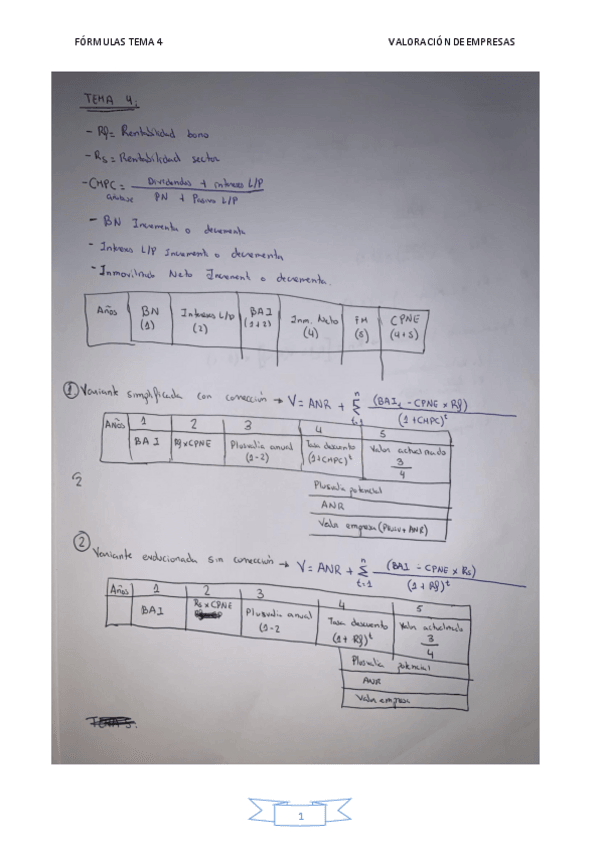 FÓRMULAS TEMA 4 VALORACIÓN DE EMPRESAS
TEMA 4.
- Rf = Rentabilidad bono
- Rs = Rentabilidad sector
- CMPC = Dividendos + intereses L/P
PN + Pasivo L/P
- BN Incrementa o decrementa
- Intereses L/P Increment o decrementa
- Inmovilizado Neto Increment o decrementa.
Años BN (1) Intereses L/P (2) BAI (1+2) Inm. Neto (4) FM (5) CPNE (4+5)
① Variante simplificada con corrección → V = ANR + n Σ t=1 (BAI₁ - CPNE x Rf)
(1+CMPC)^t
Años 1 2 3 4 5
BAI Rf x CPNE Plusvalía anual (1-2) Tasa descuento (1+CMPC)^t Valor actualizado 3/4
2
Plusvalía potencial
ANR
Valor empresa (Plusv+ANR)
② Variante evolucionada sin corrección → V = ANR + n Σ t=1 (BAI - CPNE x Rs)
(1 + Rf)^t
Años 1 2 3 4 5
BAI Rs x CPNE Plusvalía anual (1-2 Tasa descuento (1+Rf)^t Valor actualizado 3/4
Plusvalía potencial
ANR
Valor empresa
1